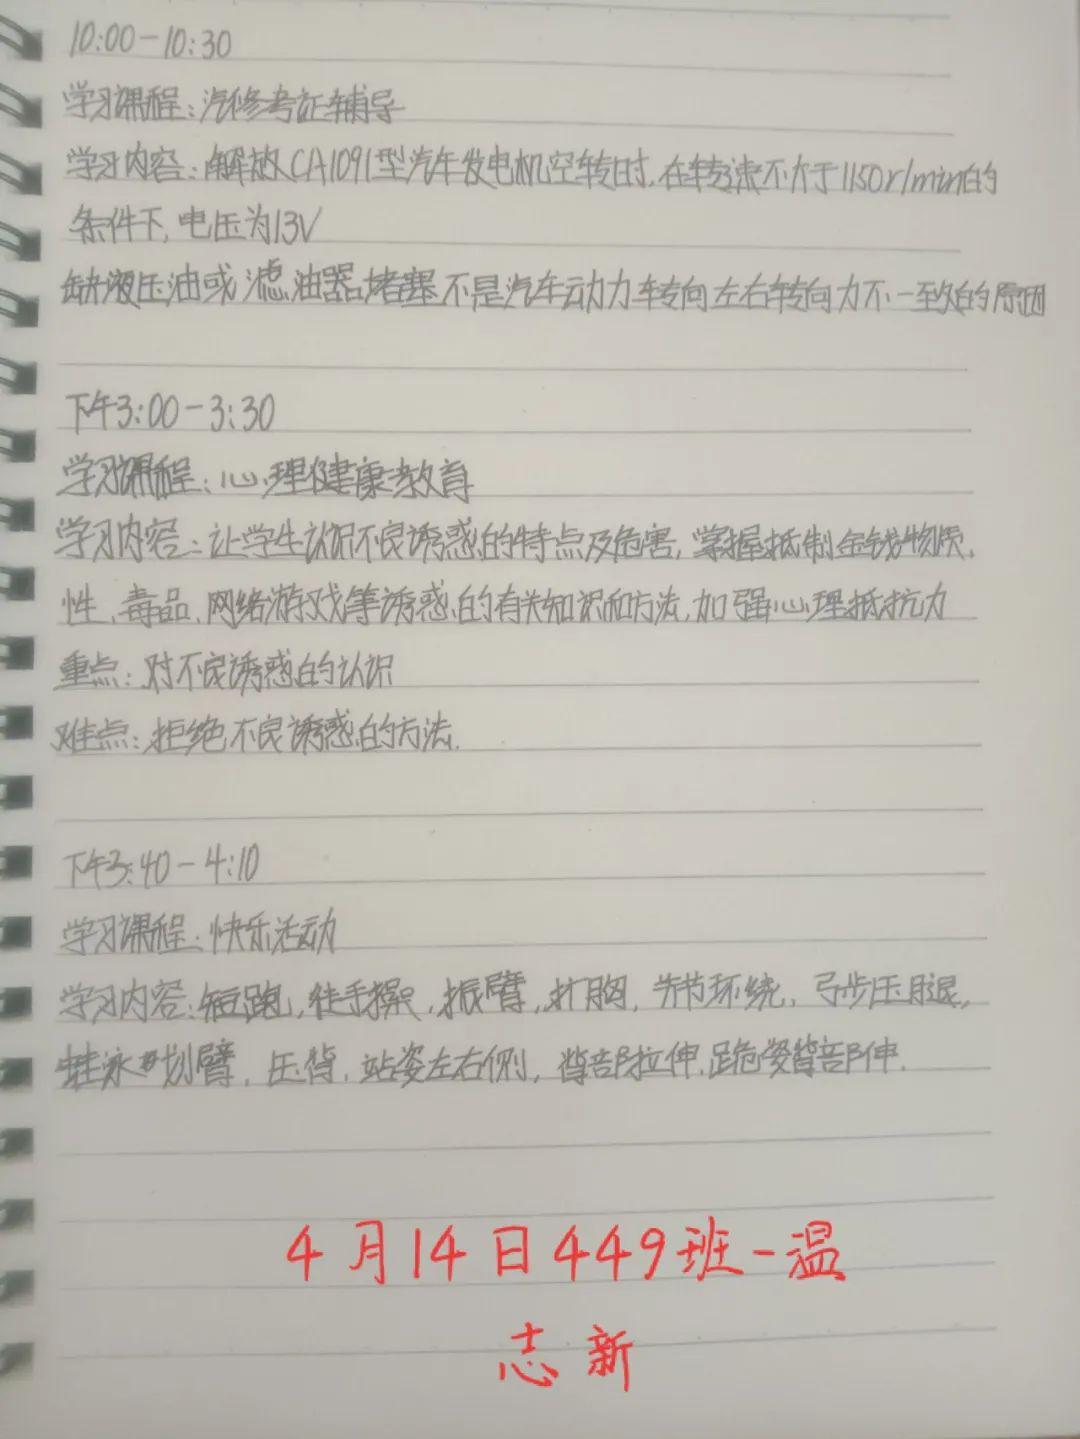 10:00-10:30
学习课程:汽修考证辅导
学习内容:解放CA1091型汽车发电机空转时,在转速不大于1150r/min的
条件下,电压为13V
缺液压油或滤油器堵塞不是汽车动力转向左右转向力不一致的原因
下午3:00-3:30
学习课程:心理健康教育
学习内容:让学生认识不良诱惑的特点及危害,掌握抵制金钱物质、
性、毒品、网络游戏等诱惑的有关知识和方法,加强心理抵抗力
重点:对不良诱惑的认识
难点:拒绝不良诱惑的方法.
下午3:40-4:10
学习课程:快乐活动
学习内容:短跑,徒手操,振臂,扩胸,节环绕,弓步压腿,
蛙泳划臂,压背,站姿左右侧,背部拉伸,跪姿背部伸.
4月14日449班-温
志新